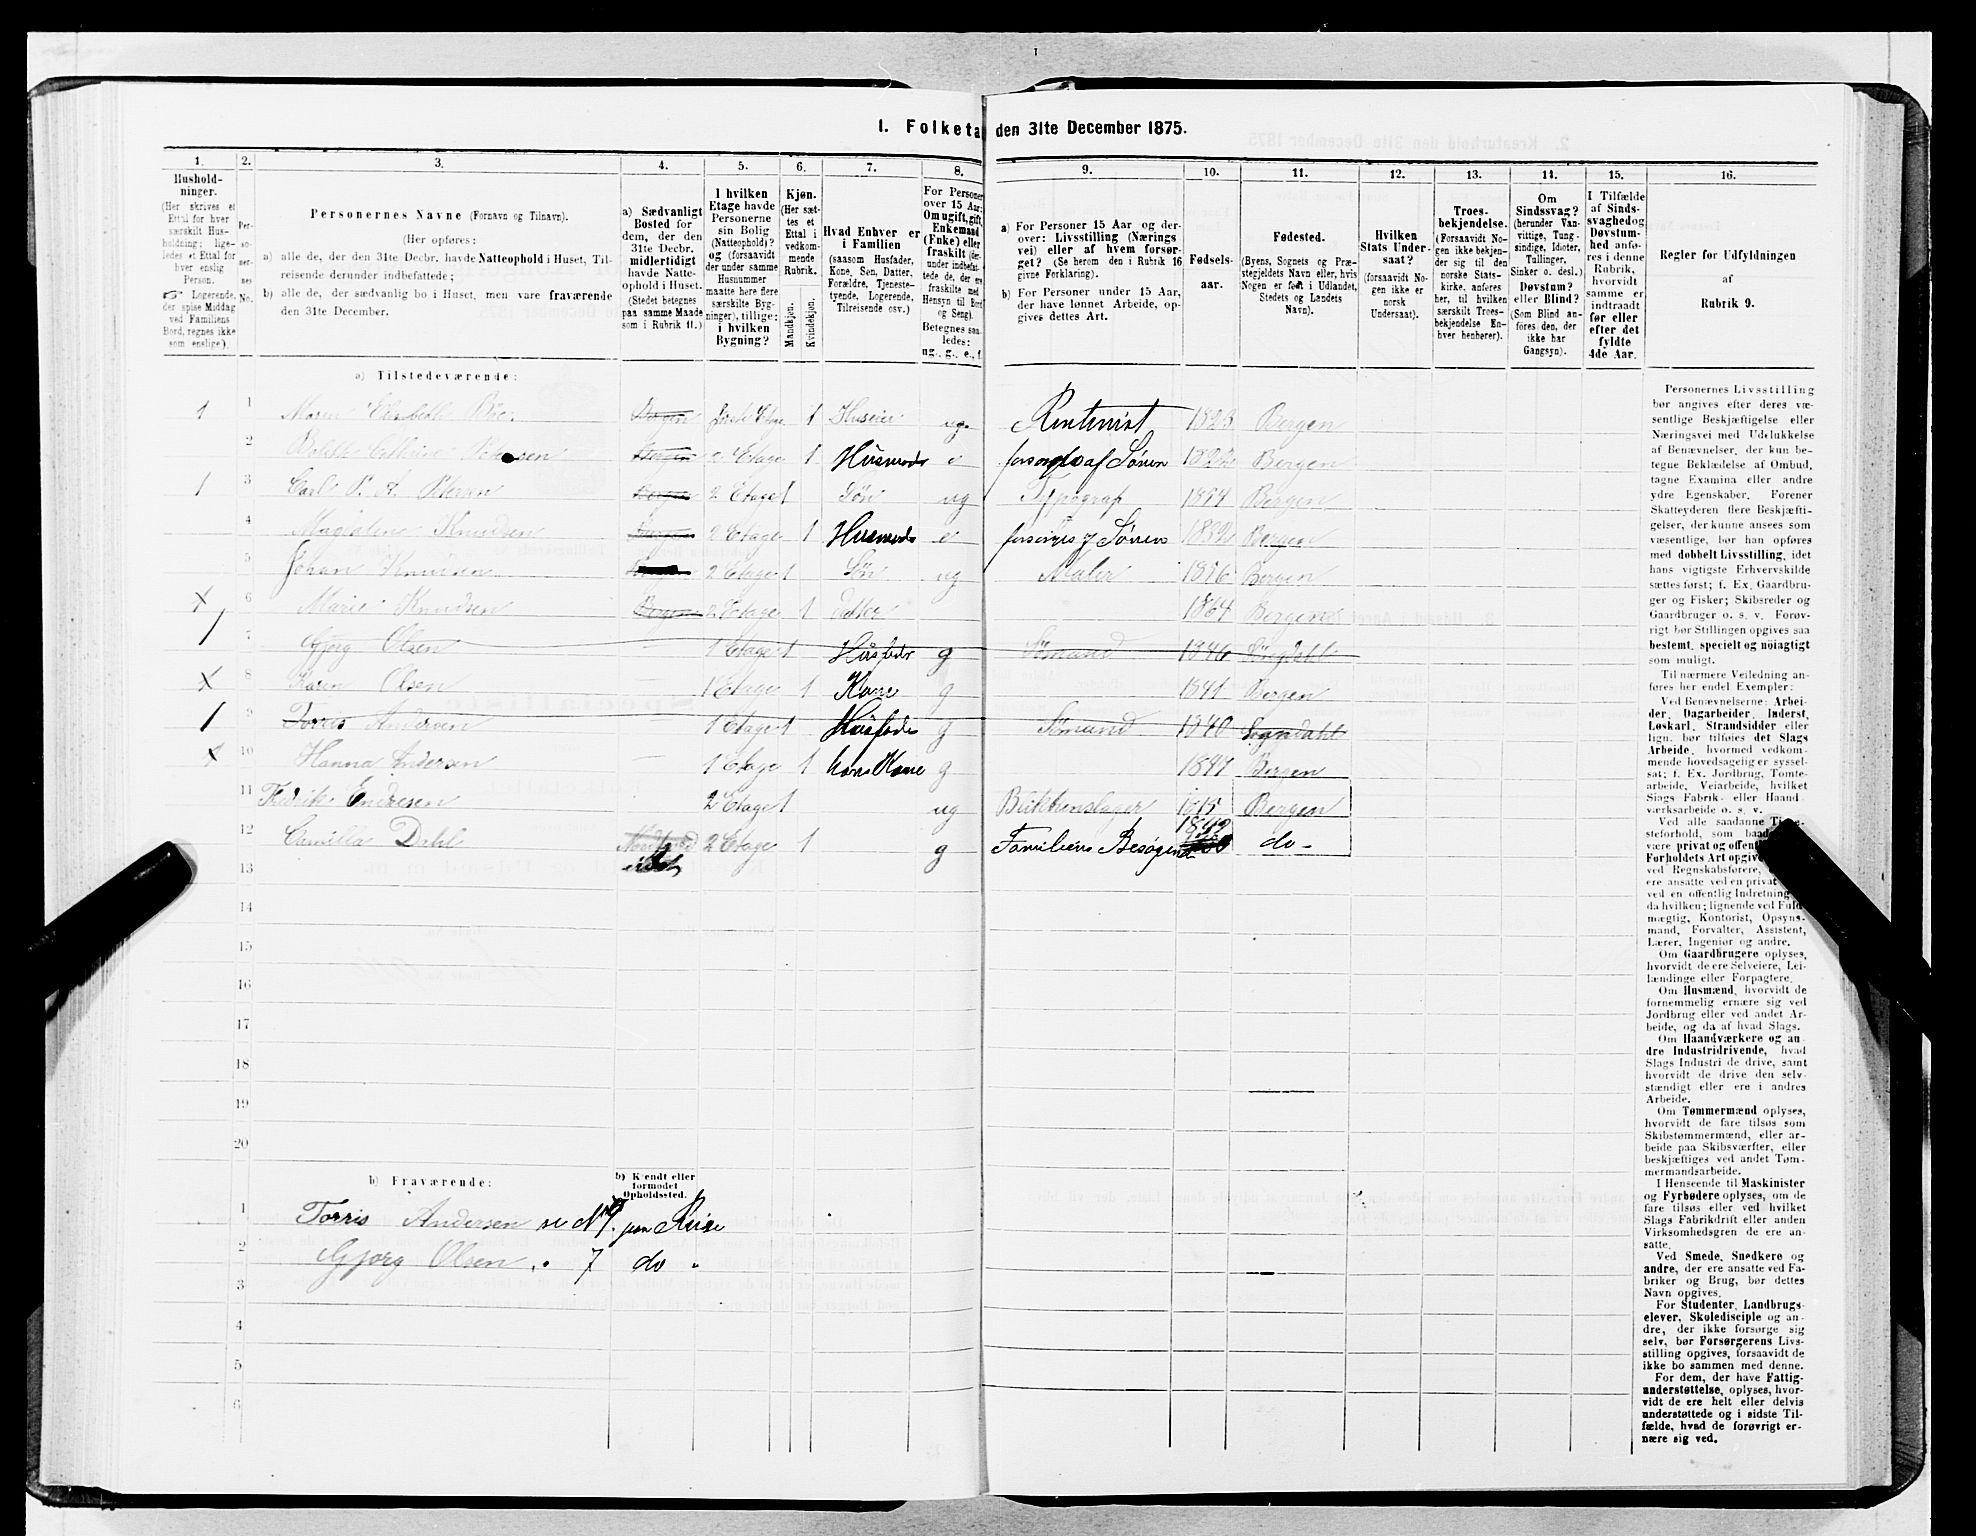 1. Folketa den 31te December 1875.
1. 2. 3. 4. 5. 6. 7. 8. 9. 10. 11. 12. 13. 14. 15. 16.
Hushold-
ninger.
(Her skrives et
Ettal for hver
særskilt Hus-
holdning; lige-
ledes et Ettal for
hver enslig
Person.
☞ Logerende,
der spise Middag
ved Familiens
Bord, regnes ikke
som enslige).
Per-
so-
ner-
nes
No.
Personernes Navne (Fornavn og Tilnavn).
(Her opføres:
a) alle de, der den 31te Decbr. havde Natteophold i Huset, Til-
reisende derunder indbefattede;
b) alle de, der sædvanlig bo i Huset, men vare fraværende
den 31te December.
a) Sædvanligt
Bosted for
dem, der den
31te Decbr.
midlertidigt
havde Natte-
ophold i Huset.
(Stedet betegnes
paa samme Maade
som i Rubrik 11.)
I hvilken
Etage havde
Personerne
sin Bolig
(Natteophold)?
og (forsaavidt
der under samme
Husnummer
maatte høre flere
særskilte Byg-
ninger), tillige:
i hvilken
Bygning?
Kjøn.
(Her sæt-
tes et
Ettal i
vedkom-
mende
Rubrik.
Mandkjøn.
Kvindekjøn.
Hvad Enhver er
i Familien
(saasom Husfader,
Kone, Søn, Datter,
Forældre, Tjeneste-
tyende, Logerende,
Tilreisende osv.)
For Personer
over 15 Aar:
Om ugift, gift,
Enkemand
(Enke) eller
fraskilt (der-
under indbefat-
tede de, der ere
fraskilte med
Hensyn til Bord
og Seng).
Betegnes saa-
ledes:
ug., g., e., f.
a) For Personer 15 Aar og der-
over: Livsstilling (Nærings
vei) eller af hvem forsør-
get? (Se herom den i Rubrik 16
givne Forklaring).
b) For Personer under 15 Aar,
der have lønnet Arbeide, op-
gives dettes Art.
Fødsels-
aar.
Fødested.
(Byens, Sognets og Præ-
stegjeldets Navn eller, hvis
Nogen er født i Udlandet,
Stedets og Landets
Navn).
Hvilken
Stats Under-
saat?
(forsaavidt No-
gen ikke er
norsk
Undersaat).
Troes-
bekjendelse.
(Forsaavidt No-
gen ikke bekjen-
der sig til den
norske Stats-
kirke, anføres
her, til hvilken
særskilt Troes-
bekjendelse En-
hver henhører).
Om
Sindssvag?
(herunder Van-
vittige, Tung-
sindige, Idioter,
Tullinger,
Sinker o. desl.)
Døvstum?
eller Blind?
(Som Blind an-
føres den, der
ikke har
Gangsyn).
I Tilfælde
af Sinds-
svaghed og
Døvstum-
hed anfø-
res i denne
Rubrik,
hvorvidt
samme er
indtraadt
før eller
efter det
fyldte
4de Aar.
Regler for Udfyldningen
af
Rubrik 9.
a) Tilstedeværende:
1 1 Maren Elisabeth Bøe. Bergen første Etage 1 Huseier ug. Rentenist 1823 Bergen
2 Cathrine Petersen Bergen 2 Etage 1 Husmoder e forsørges af Sønnen 1822 Bergen
1 3 Carl P. A. Petersen Bergen 2 Etage 1 Søn ug Typograf 1854 Bergen
4 Magdalene Knudsen Bergen 2 Etage 1 Husmoder e forsørges af Sønnen 1832 Bergen
5 Johan Knudsen 2 Etage 1 Søn ug Maler 1856 Bergen
x 6 Marie Knudsen Bergen 2 Etage 1 datter 1864 Bergen
1 7 Gjørg Olsen — 1 Etage 1 Husfader g Sømand 1846
x 8 Karen Olsen — 1 Etage 1 Kone g 1841 Bergen
1 9 Torris Andersen — 1 Etage 1 Husfader g Sømand 1840 Sogndahl
x 10 Hanna Andersen — 1 Etage 1 hans Kone g 1847 Bergen
11 Fredrik Endresen 2 Etage 1 ug Blikkenslager 1815 Bergen
12 Camilla Dahl 2 Etage 1 g Familiens Besøgende 1842 do-
13
14
15
16
17
18
19
20
b) Fraværende:
b) Kjendt eller
formodet
Opholdssted.
1 Torris Andersen se No 9. paa Reise
2 Gjørg Olsen „ 7 do „
3
4
5
6
Personernes Livsstilling
bør angives efter deres væ-
sentlige Beskjæftigelse eller
Næringsvei med Udelukkelse
af Benævnelser, der kun be-
tegne Beklædelse af Ombud,
tagne Examina eller andre
ydre Egenskaber. Forener
Skatteyderen flere Beskjæfti-
gelser, der kunne ansees som
væsentlige, bør han opføres
med dobbelt Livsstilling, idet
hans vigtigste Erhvervskilde
sættes først; f. Ex. Gaardbru-
ger og Fisker; Skibsreder og
Gaardbruger o. s. v. Forøv-
rigt bør Stillingen opgives saa
bestemt, specielt og nøiagtigt
som muligt.
Til nærmere Veiledning an-
føres her endel Exempler:
Ved Benævnelserne: Arbei-
der, Dagarbeider, Inderst,
Løskarl, Strandsidder eller
lign. bør tilføies det Slags
Arbeide, hvormed vedkom-
mende hovedsagelig er syssel-
sat; f. Ex. Jordbrug, Tomte-
arbeide, Veiarbeide, hvilket
Slags Fabrik- eller Haand
værksarbeide o. s. v.
Ved alle saadanne
steforhold, som
være privat og
Forholdets Art
ved Regnskabsførere,
ere ansatte ved en privat
ved en offentlig Indretning,
da hvilken; lignende ved Fuld-
mægtig, Kontorist, Opsyns-
mand, Forvalter, Assistent,
Lærer, Ingeniør og andre.
Om Gaardbrugere oplyses,
hvorvidt de ere Selveiere, Lei-
lændinge eller Forpagtere.
Om Husmænd, hvorvidt de
fornemmelig ernære sig ved
Jordbrug eller ved andet Ar-
beide, og da af hvad Slags.
Om Haandværkere og an-
dre Industridrivende, hvad
Slags Industri de drive, samt
hvorvidt de drive den selv-
stændigt eller ere i andres
Arbeide.
Om Tømmermænd oplyses,
hvorvidt de fare tilsøs som
Skibstømmermænd, eller ar-
beide paa Skibsværfter, eller
beskjæftiges ved andet Tøm-
mermandsarbeide.
I Henseende til Maskinister
og Fyrbødere oplyses, om de
fare tilsøs eller ved hvilket
Slags Fabrikdrift eller anden
Virksomhedsgren de ere an-
satte.
Ved Smede, Snedkere og
andre, der ere ansatte ved Fa-
briker og Brug, bør dettes
Navn opgives.
For Studenter, Landbrugs-
elever, Skoledisciple og an-
dre, der ikke forsørge sig
selv, bør Forsørgerens Livs-
stilling opgives, forsaavidt de
ikke bo sammen med denne.
For dem, der have Fattig-
understøttelse, oplyses, hvor-
vidt de ere helt eller delvis
understøttede og i sidste Til-
fælde, hvad de forøvrigt er-
nære sig ved.